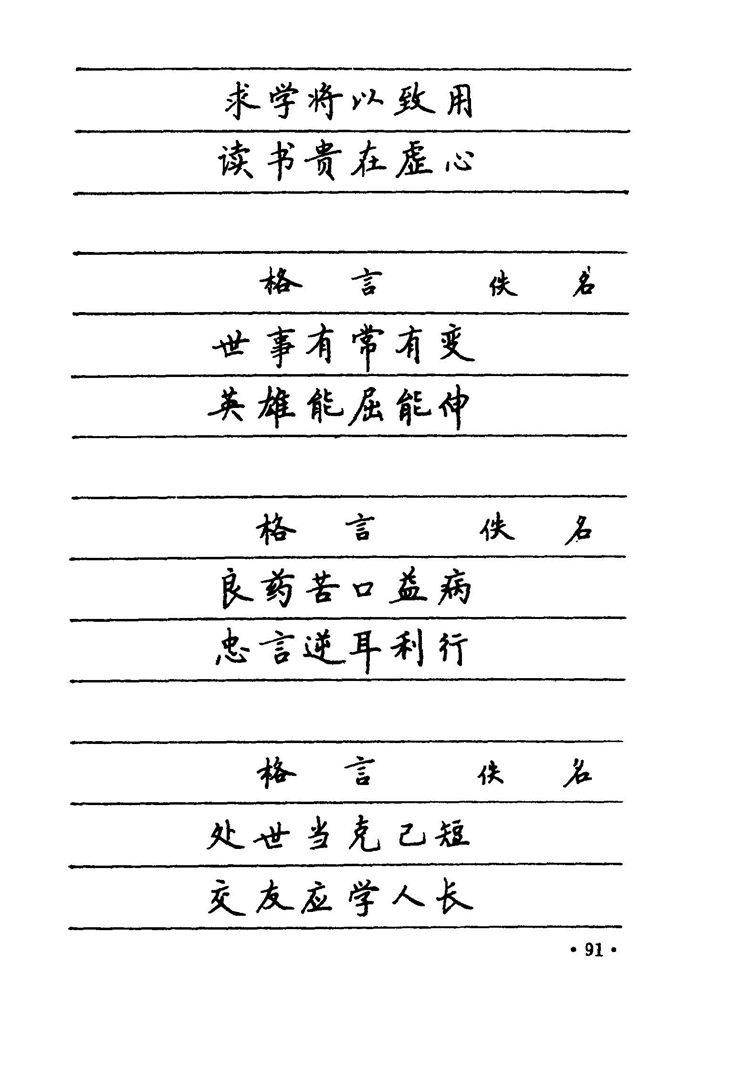 求学将以致用
读书贵在虚心
格言 佚名
世事有常有变
英雄能屈能伸
格言 佚名
良药苦口益病
忠言逆耳利行
格言 佚名
处世当克己短
交友应学人长
·91·